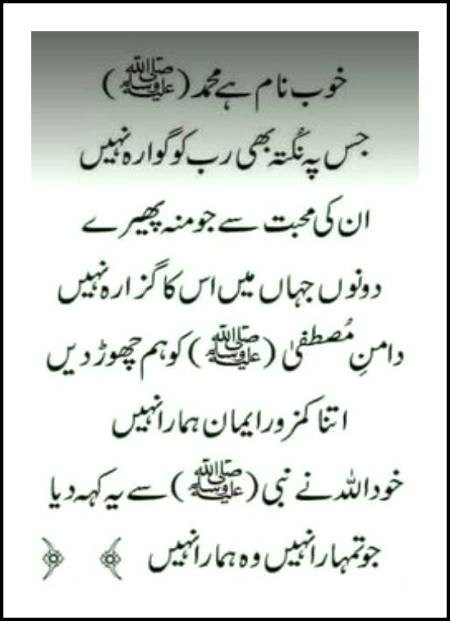 خوب نام ہے محمد (ﷺ)
جس پہ نُکتہ بھی رب کو گوارہ نہیں
ان کی محبت سے جو منہ پھیرے
دونوں جہاں میں اس کا گزارہ نہیں
دامنِ مُصطفیٰ (ﷺ) کو ہم چھوڑ دیں
اتنا کمزور ایمان ہمارا نہیں
خود اللہ نے نبی (ﷺ) سے یہ کہہ دیا
جو تمہارا نہیں وہ ہمارا نہیں